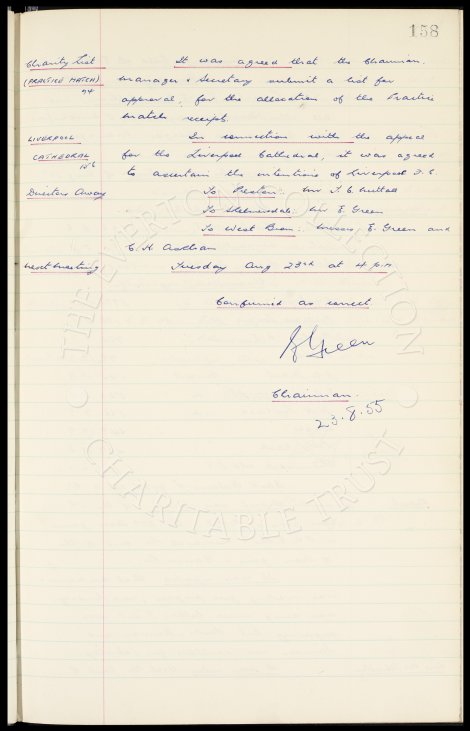 158
Charity List It was agreed that the Chairman,
(PRACTICE MATCH) Manager & Secretary submit a list for
94 approval, for the allocation of the Practice
Match receipts.
LIVERPOOL In connection with the appeal
CATHEDRAL for the Liverpool Cathedral, it was agreed
to ascertain the intentions of Liverpool F.C.
Directors Away To Preston: Mr T.C. Nuttall
To Mr E. Green
To West Brom: Messrs E. Green and
C. H. Askham
Next Meeting Tuesday Aug 23rd at 4 p.m.
Confirmed as correct
E Green
Chairman.
23.8.55
THE EVERTON COLLECTION
CHARITABLE TRUST